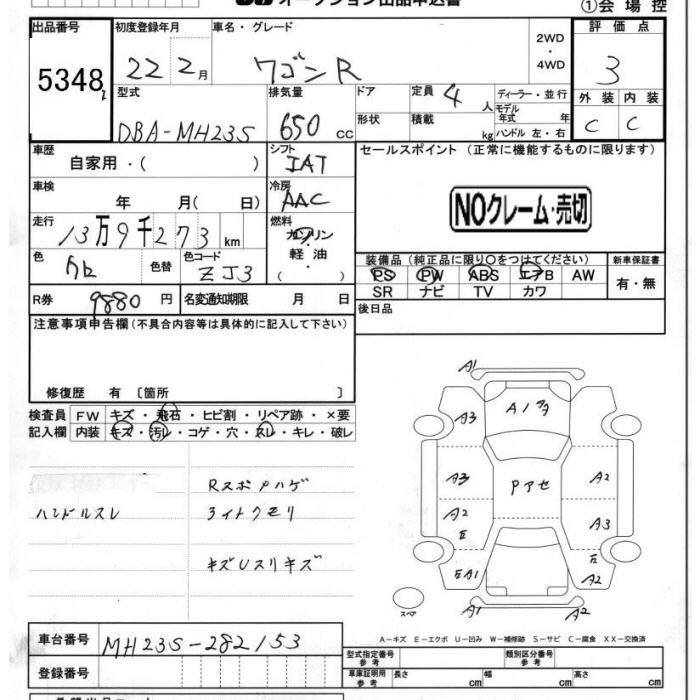 オークション出品申込書
①会場控
出品番号 初度登録年月 車名・グレード 2WD・4WD 評価点
5348 22 2月 ワゴンR 3
型式 排気量 ドア 定員 4人 ディーラー・並行 外装 内装
DBA-MH23S 650cc 形状 積載 kg モデル年式 年 ハンドル 左・右 C C
車歴 シフト セールスポイント (正常に機能するものに限ります)
自家用・( ) IAT
車検 冷房
年 月( 日) AAC NOクレーム・売切
走行 燃料
13万9千273km ガソリン・軽油・( )
色 色替 色コード 装備品 (純正品に限り○をつけてください) 新車保証書
ZJ3 PS PW ABS エアB AW 有・無
SR ナビ TV カワ
R券 9880円 名変通知期限 月 日 後日品
注意事項申告欄(不具合内容等は具体的に記入して下さい)
修復歴 有 〔箇所 〕
検査員 FW キズ・飛石・ヒビ割・リペア跡・×要
記入欄 内装 キズ・汚レ・コゲ・穴・スレ・キレ・破レ
RスポPハゲ
ハンドルスレ ライトクモリ
キズUスリキズ
A1
A3 A1
A3 Pアセ A2
A2 A3
E E
EA1 A2
スペア A1 A2
A-キズ E-エクボ U-凹み W-補修跡 S-サビ C-腐食 XX-交換済
車台番号 MH23S-282153
型式指定番号 参考 類別区分番号 参考
登録番号 車庫証明用 参考 長さ cm 幅 cm 高さ cm